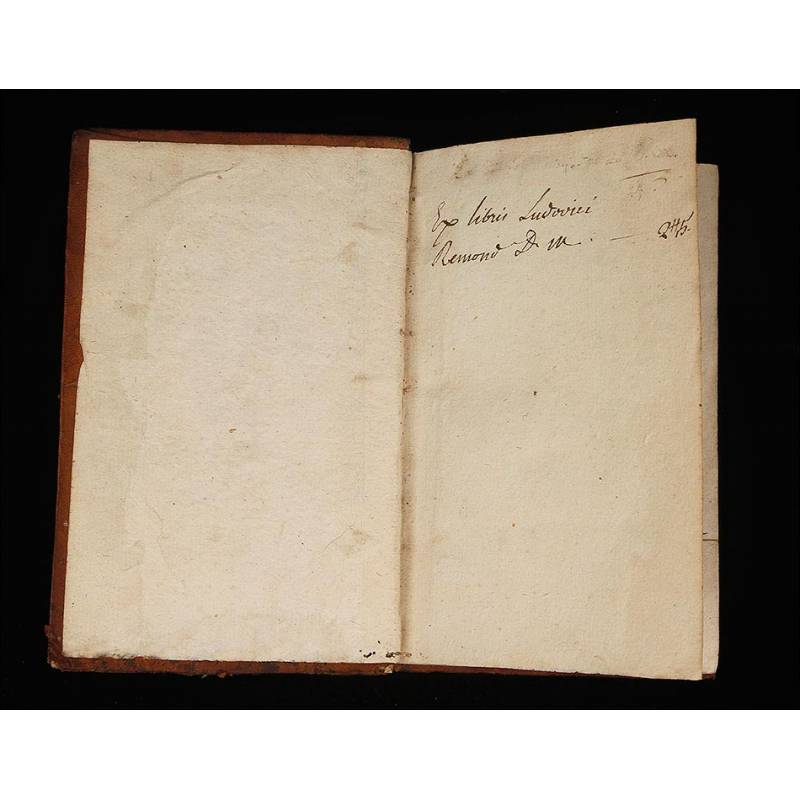 Ex libris Ludovici
Remond D. m. — 245